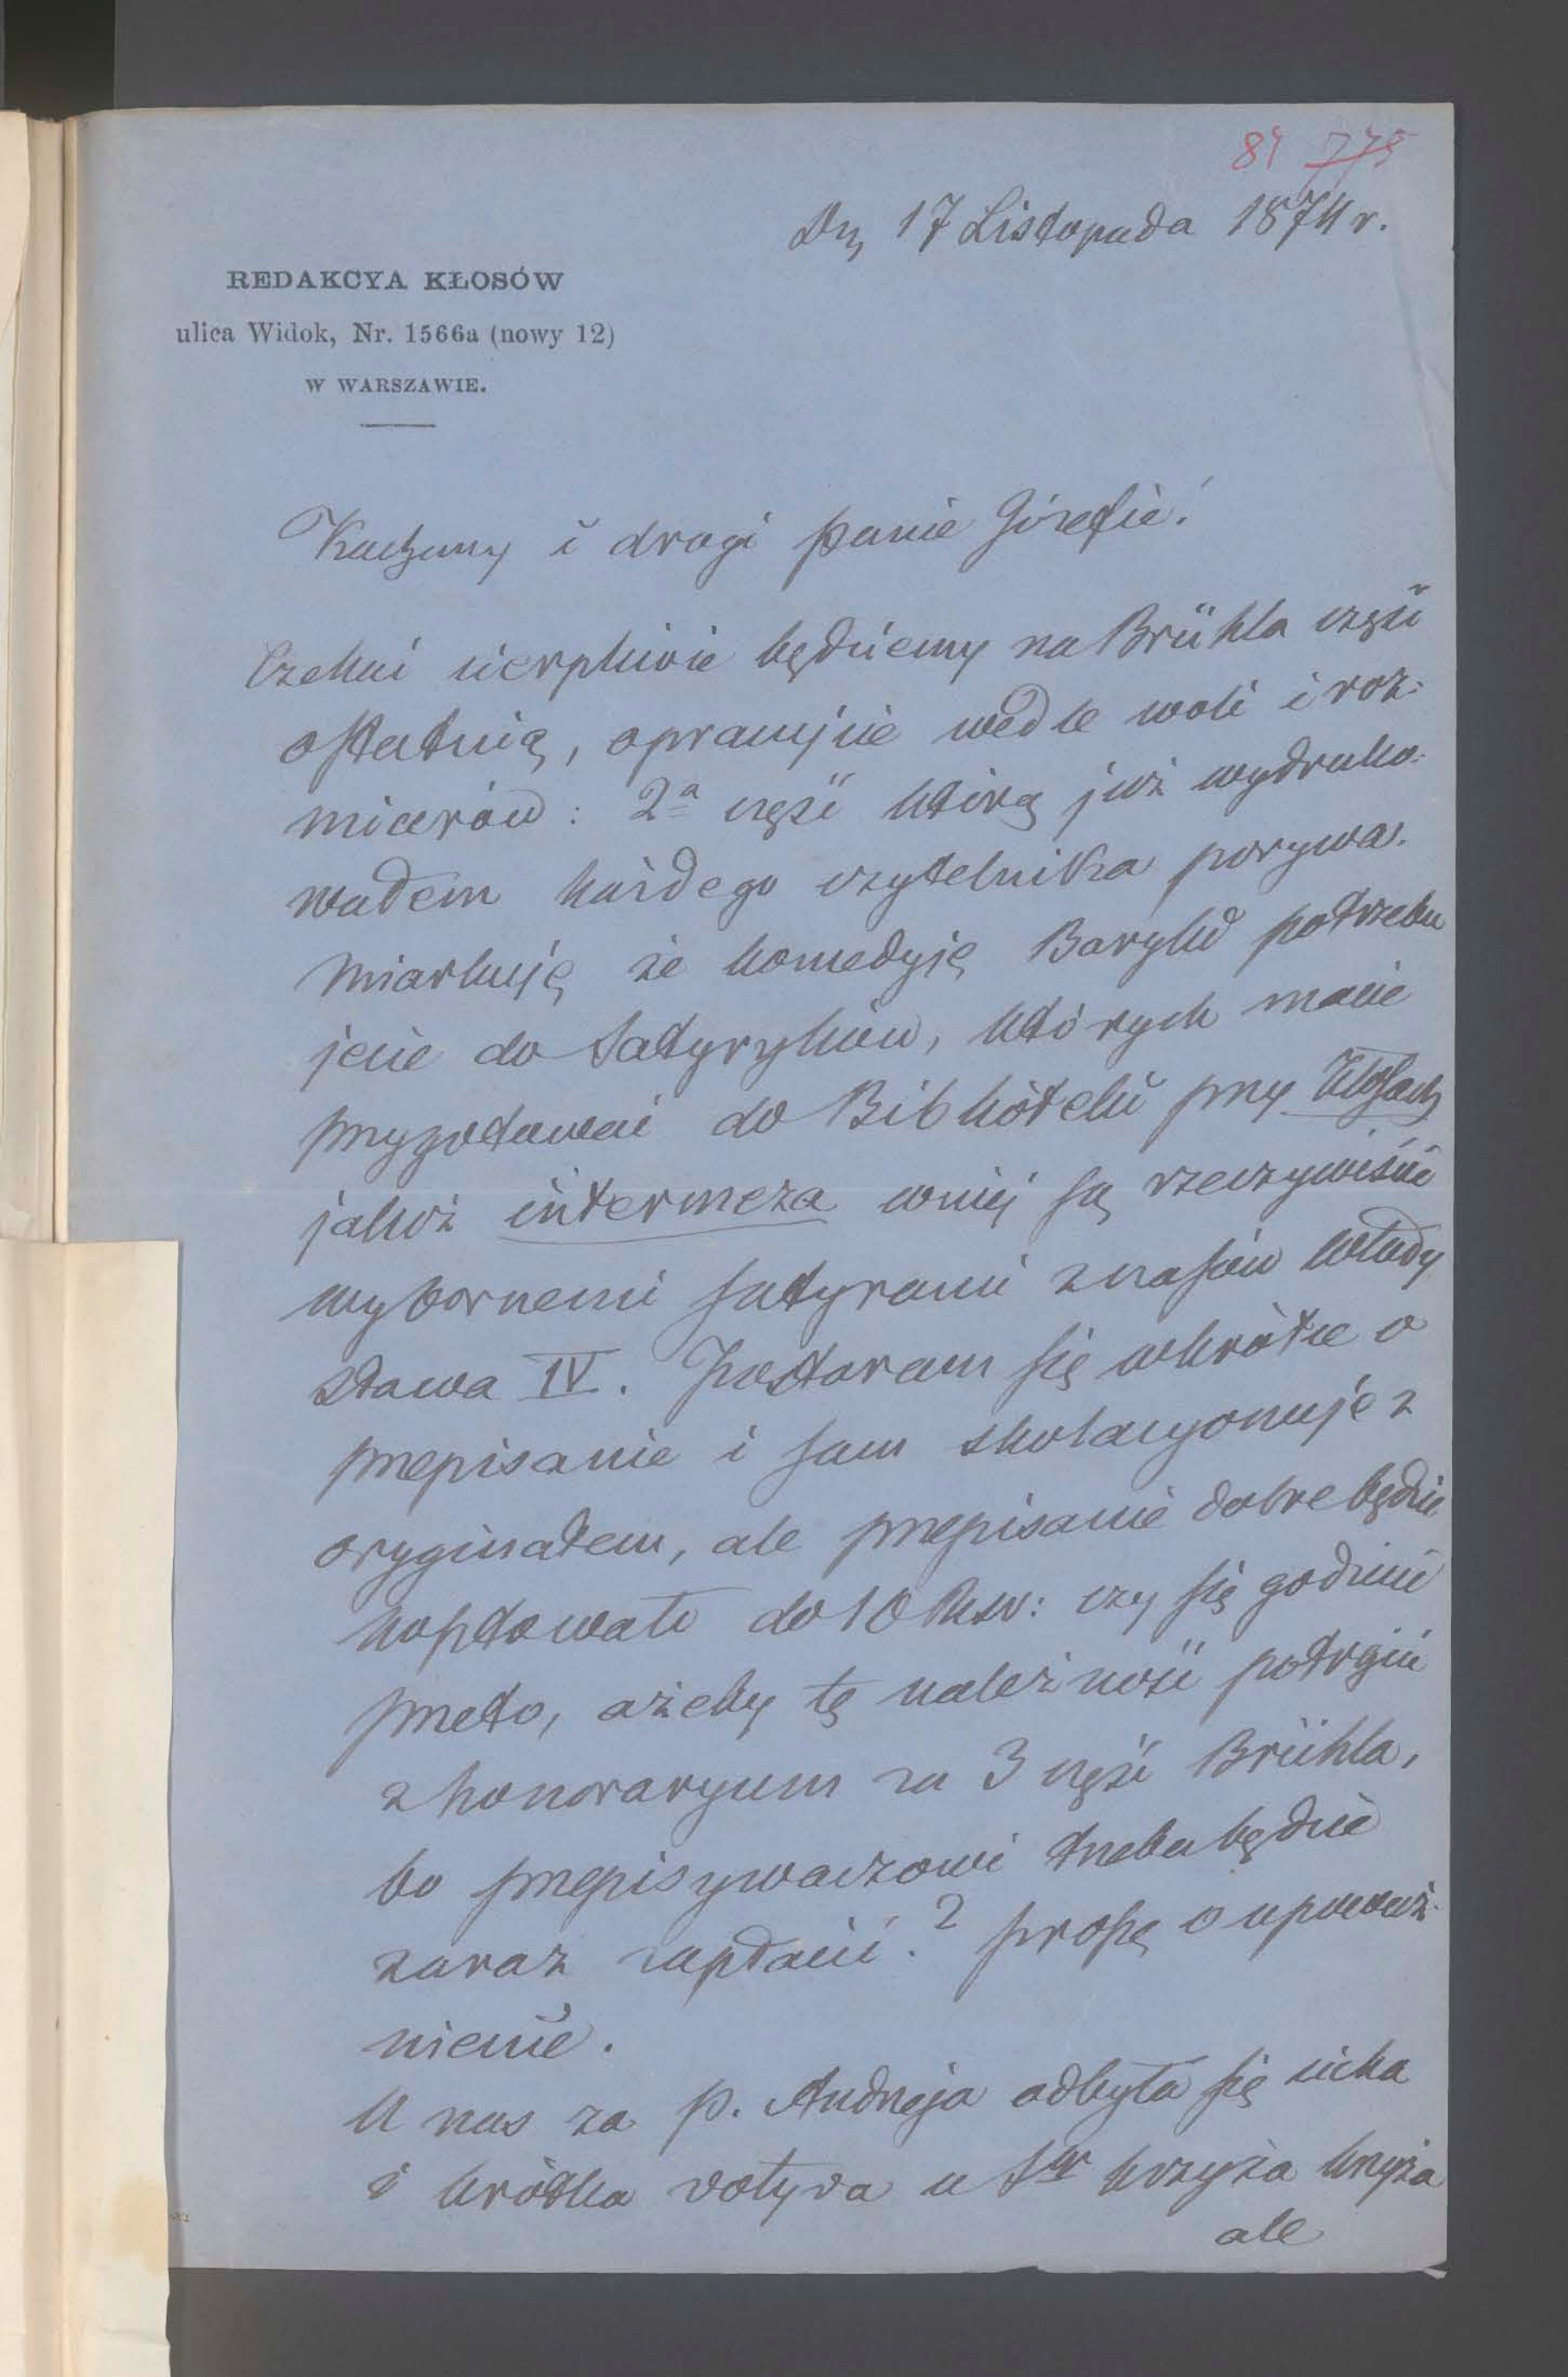 84 775
Dn. 17 Listopada 1874 r.
REDAKCYA KŁOSÓW
ulica Widok, Nr. 1566a (nowy 12)
W WARSZAWIE.
Kochany i drogi panie Józefie!
Czekać cierpliwie będziemy na Brühla część
ostatnią, opracujcie wedle woli i roz-
miarów: 2ª część którą już wydruko-
wałem każdego czytelnika porywa.
Miarkuję że komedyję Baryki potrzebu
jecie do Satyryków, których macie
przygotować do Biblioteki przy Kłosach
jakoż intermeza w niej są rzeczywiście
wybornemi satyrami z czasów Włady
sława IV. Postaram się wkrótce o
przepisanie i sam skolacyonuję z
oryginałem, ale przepisanie dobre będzie
kosztowało do 10 Rsr: czy się godzicie
przeto, ażeby tę należność potrącić
z honoraryum za 3 część Brühla,
bo przepisywaczowi trzeba będzie
zaraz zapłacić? proszę o upoważ-
nienie.
U nas za p. Andrzeja odbyła się cicha
i krótka votyva u Sgo krzyża krzyża
ale